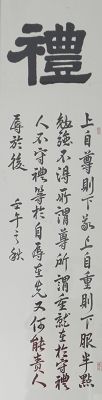 禮
上自尊則下敬上自重則下服半點
勉強不得所謂尊所謂重就在於守禮
人不守禮等於自辱在先又何能責人
辱於後 壬午之秋